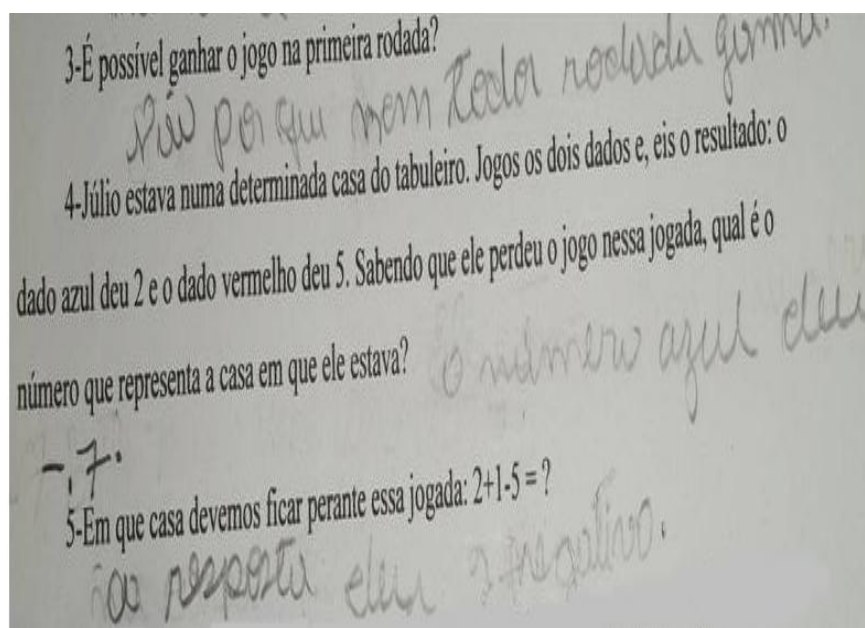 3-É possível ganhar o jogo na primeira rodada?
Não por que nem toda rodada ganha.
4-Júlio estava numa determinada casa do tabuleiro. Jogos os dois dados e, eis o resultado: o
dado azul deu 2 e o dado vermelho deu 5. Sabendo que ele perdeu o jogo nessa jogada, qual é o
número que representa a casa em que ele estava? o número azul deu
-7.
5-Em que casa devemos ficar perante essa jogada: 2+1-5 = ?
resposta deu negativo.